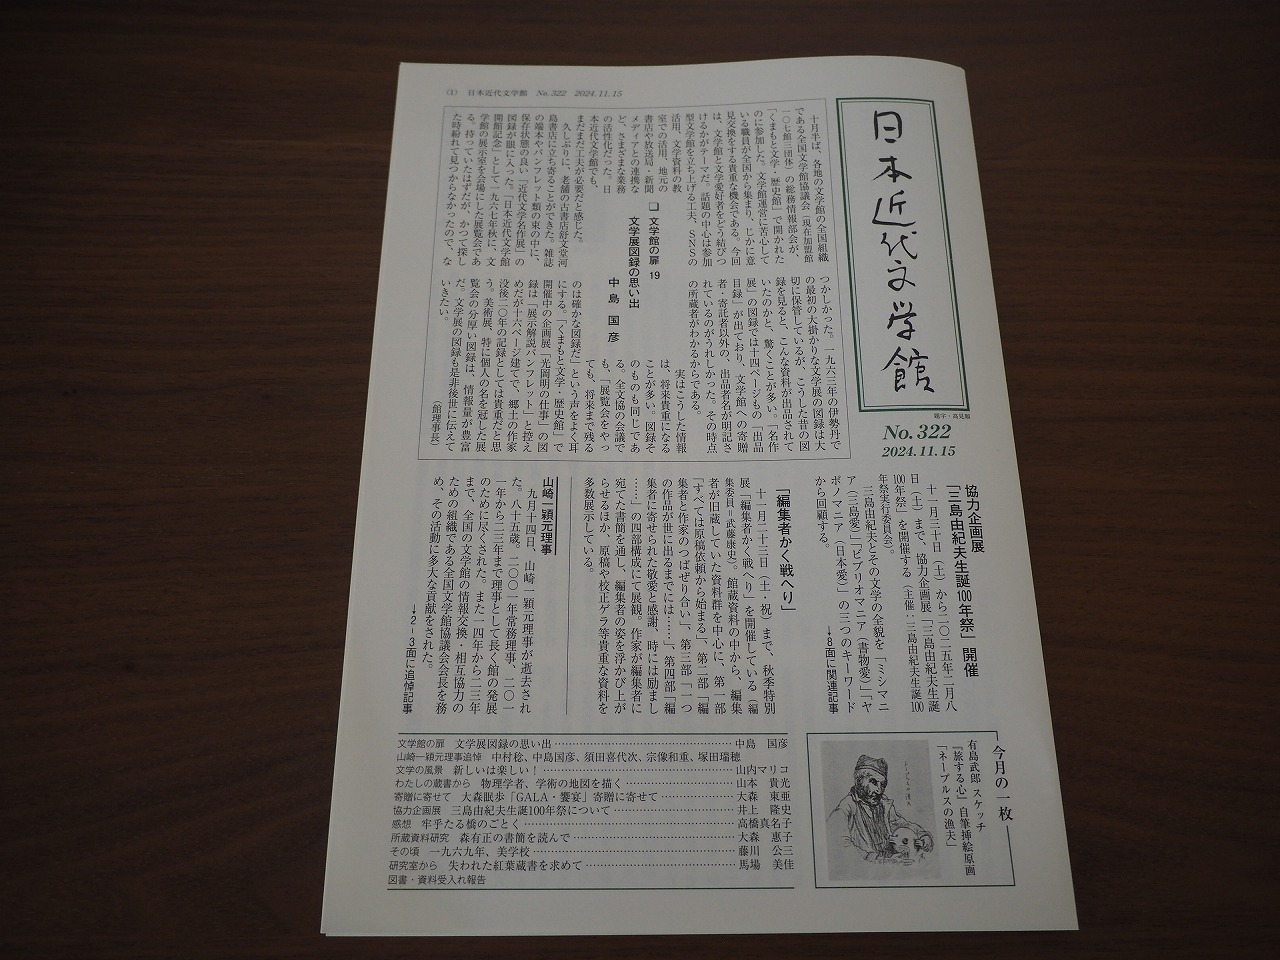 (1) 日本近代文学館 No. 322 2024. 11. 15
日本近代文学館
題字・高見順
No. 322
2024. 11. 15
□ 文学館の扉 19
文学展図録の思い出
中島 国彦
十月半ば、各地の文学館の全国組織
である全国文学館協議会(現在加盟館
一〇七館三団体)の総務情報部会が、
「くまもと文学・歴史館」で開かれた
のに参加した。文学館運営に苦心して
いる職員が全国から集まり、じかに意
見交換をする貴重な機会である。今回
は、文学館と文学愛好者をどう結びつ
けるかがテーマだ。話題の中心は参加
型文学館を立ち上げる工夫、SNSの
活用、文学資料の教
室での活用、地元の
書店や放送局・新聞
メディアとの連携な
ど、さまざまな業務
の活性化だった。日
本近代文学館でも、
まだまだ工夫が必要だと感じた。
久しぶりに、老舗の古書店舒文堂河
島書店に立ち寄ることができた。雑誌
の端本やパンフレット類の束の中に、
保存状態の良い「近代文学名作展」の
図録が眼に入った。「日本近代文学館
開館記念」として一九六七年秋に、文
学館の展示室を会場にした展覧会であ
る。持っていたはずだが、かつて探し
た時紛れて見つからなかったので、な
つかしかった。一九六三年の伊勢丹で
の最初の大掛かりな文学展の図録は大
切に保管しているが、こうした昔の図
録を見ると、こんな資料が出品されて
いたのかと、驚くことが多い。「名作
展」の図録では十四ページもの「出品
目録」が出ており、文学館への寄贈
者・寄託者以外の、出品者名が明記さ
れているのがうれしかった。その時点
の所蔵者がわかるからである。
実はこうした情報
は、将来貴重になる
ことが多い。図録そ
のものも同じであ
る。全文協の会議で
も、「展覧会をやっ
ても、将来まで残る
のは確かな図録だ」という声をよく耳
にする。「くまもと文学・歴史館」で
開催中の企画展「光岡明の仕事」の図
録は「展示解説パンフレット」と控え
めだが十六ページ建てで、郷土の作家
没後二〇年の記録としては貴重だと思
う。美術展、特に個人の名を冠した展
覧会の分厚い図録は、情報量が豊富
だ。文学展の図録も是非後世に伝えて
いきたい。
(館理事長)
協力企画展
「三島由紀夫生誕100年祭」開催
十一月三十日(土)から二〇二五年二月八
日(土)まで、協力企画展「三島由紀夫生誕
100年祭」を開催する(主催・三島由紀夫生誕100
年祭実行委員会)。
三島由紀夫とその文学の全貌を「ミシマニ
ア(三島愛)」「ビブリオマニア(書物愛)」「ヤ
ポノマニア(日本愛)」の三つのキーワード
から回顧する。
→8面に関連記事
「編集者かく戦へり」
十一月二十三日(土・祝)まで、秋季特別
展「編集者かく戦へり」を開催している(編
集委員=武藤康史)。館蔵資料の中から、編集
者が旧蔵していた資料群を中心に、第一部
「すべては原稿依頼から始まる」、第二部「編
集者と作家のつばぜり合い」、第三部「一つ
の作品が世に出るまでには……」、第四部「編
集者に寄せられた敬愛と感謝、時には励まし
……」の四部構成にて展観。作家が編集者に
宛てた書簡を通し、編集者の姿を浮かび上が
らせるほか、原稿や校正ゲラ等貴重な資料を
多数展示している。
山崎一穎元理事
九月十四日、山崎一穎元理事が逝去され
た。八十五歳。二〇〇一年常務理事、二〇一
一年から二三年まで理事として長く館の発展
のために尽くされた。また一四年から二三年
まで、全国の文学館の情報交換・相互協力の
ための組織である全国文学館協議会会長を務
め、その活動に多大な貢献をされた。
→2-3面に追悼記事
今月の一枚
有島武郎 スケッチ
『旅する心』自筆挿絵原画
「ネープルスの漁夫」
文学館の扉 文学展図録の思い出……中島 国彦
山崎一穎元理事追悼 中村稔、中島国彦、須田喜代次、宗像和重、塚田瑞穂
文学の風景 新しいは楽しい!……山内マリコ
わたしの蔵書から 物理学者、学術の地図を描く……山本 貴光
寄贈に寄せて 大森眠歩「GALA・饗宴」寄贈に寄せて……大森 東亜
協力企画展 三島由紀夫生誕100年祭について……井上 隆史
感想 牢乎たる橋のごとく……高橋真名子
所蔵資料研究 森有正の書簡を読んで……大森 惠子
その頃 一九六九年、美学校……藤川 公三
研究室から 失われた紅葉蔵書を求めて……馬場 美佳
図書・資料受入れ報告